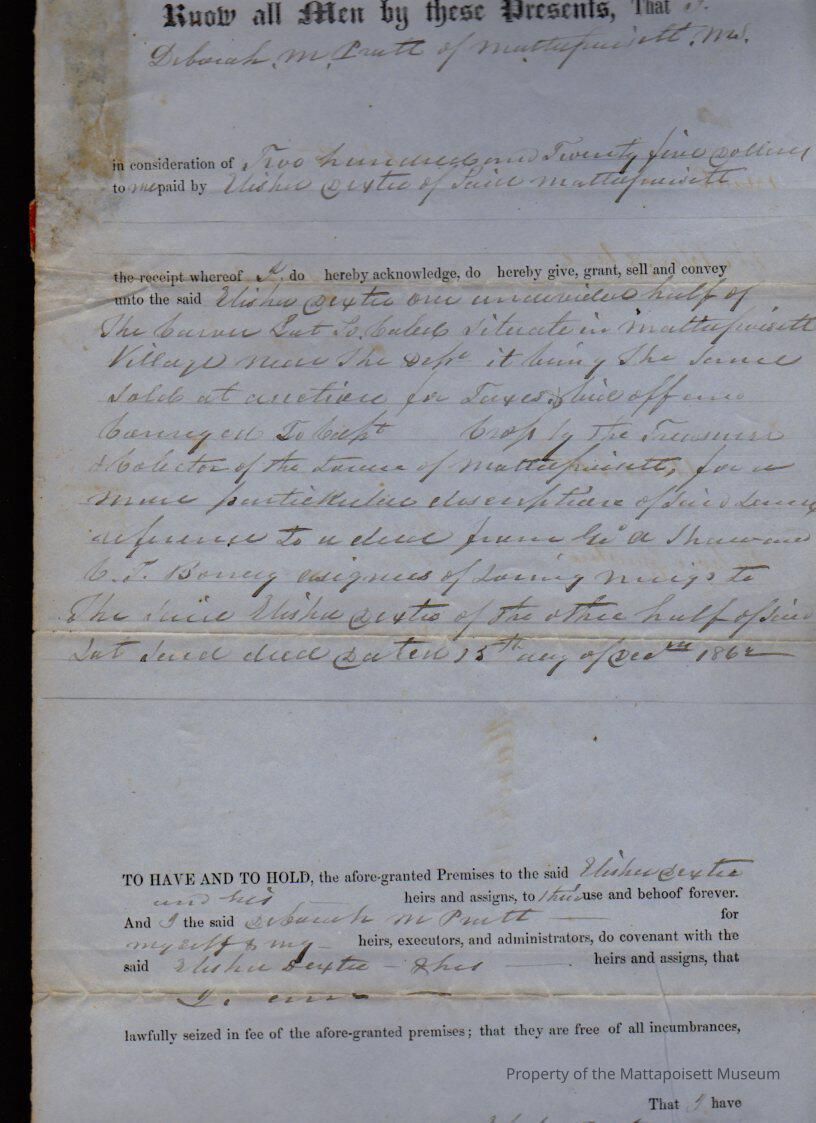 Know all Men by these Presents, That I.
Deborah M Pratt of Mattapoisett Ms.
in consideration of Two hundred and Twenty five Dollars
to me paid by Elisha Dexter of Said Mattapoisett
the receipt whereof I. do hereby acknowledge, do hereby give, grant, sell and convey
unto the said Elisha Dexter one undivided half of
The Carver Lot So Caled Situate in Mattapoisett
Village near The it being The Same
Sold at auction for Taxes & bid off and
Conveyed To Capt Cross by the Treasurer
& Colector of the Towne of Mattapoisett, for a
more partickular description of said
reference to a deed from
asignees of Loring Meigs to
The Said Elisha Dexter of the other half of Said
Lot Said deed Dated 25th day of 1862
TO HAVE AND TO HOLD, the afore-granted Premises to the said Elisha Dexter
and his heirs and assigns, to their use and behoof forever.
And I the said Deborah M Pratt for
myself & my heirs, executors, and administrators, do covenant with the
said Elisha Dexter - & his heirs and assigns, that
I. am
lawfully seized in fee of the afore-granted premises; that they are free of all incumbrances,
Property of the Mattapoisett Museum
That I have